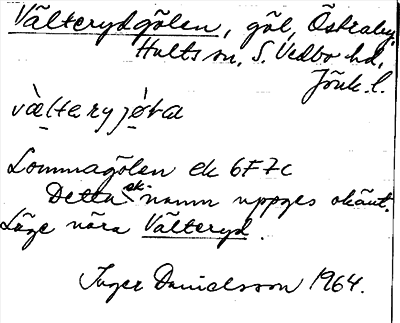 Välterydgölen, göl, Östraby,
Hults sn, S. Vedbo hd,
Jönk. l.
vàlteryjøta
Lommagölen ek 6F7c
Detta ek. namn uppges okänt.
Läge nära Välteryd.
Inger Danielsson 1964.